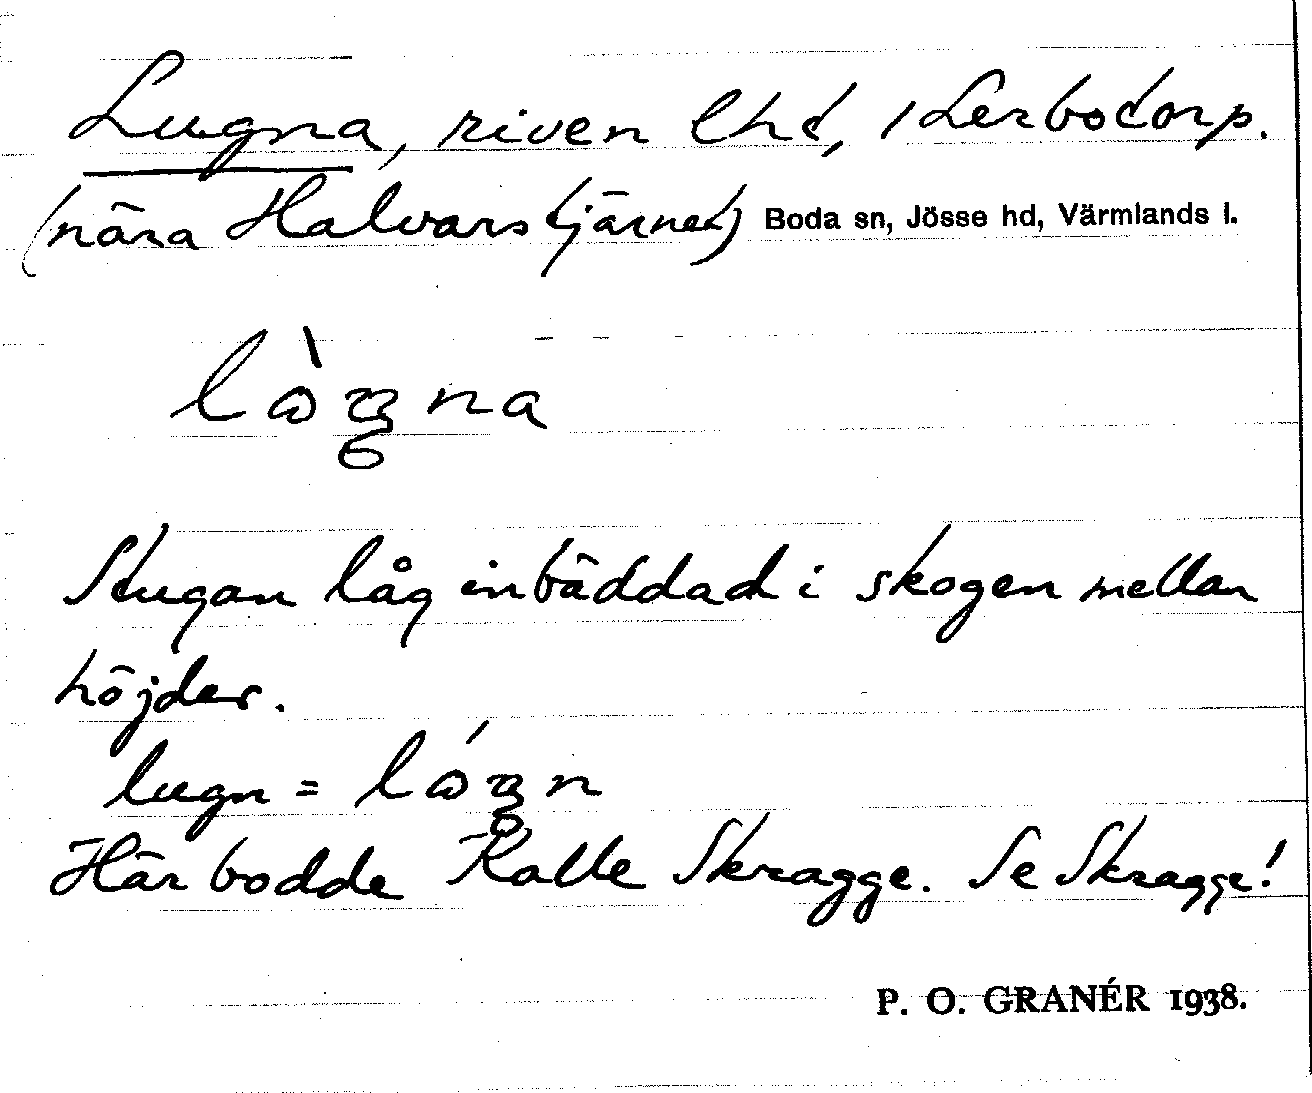 Lugna, riven lht, i Lerbotorp.
(nära Halvarstjärnet) Boda sn, Jösse hd, Värmlands l.
Stugan låg inbäddad i skogen mellan
höjder.
lugn =
Här bodde Kalle Skragge. Se Skragge!
P. O. GRANÉR 1938.